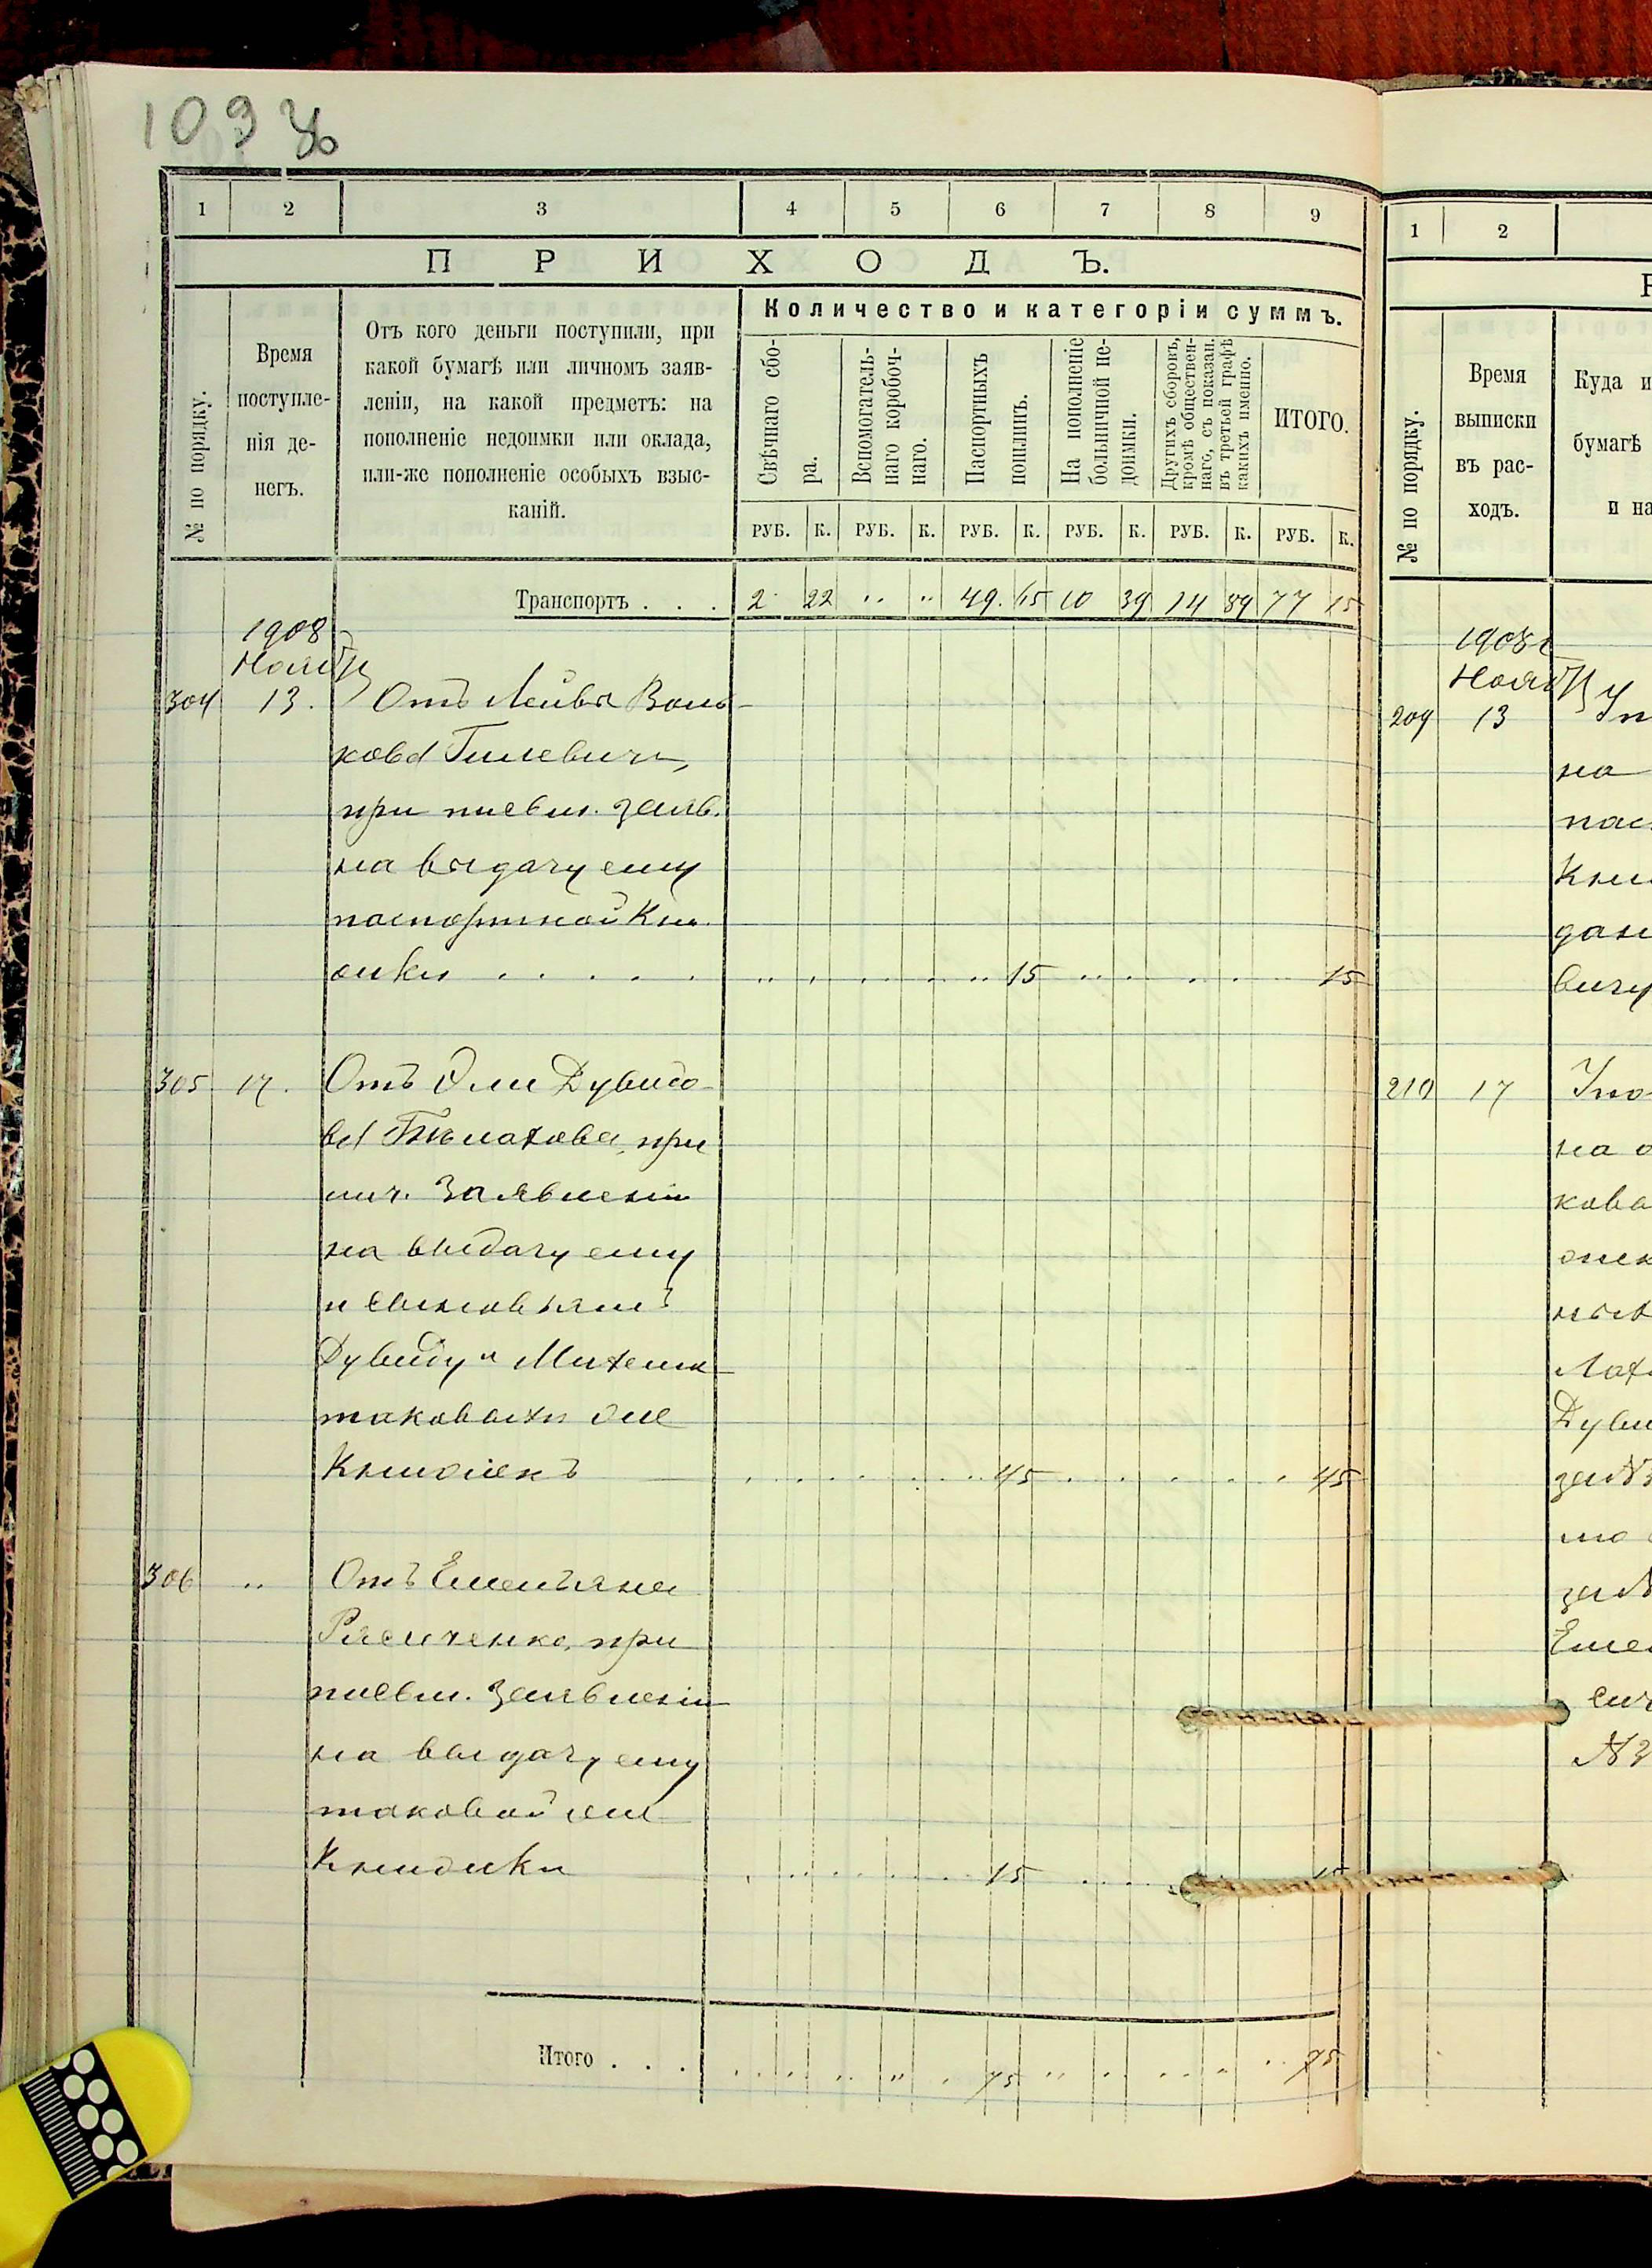 109 об
1 2 3 4 5 6 7 8 9
ПРИХОДЪ.
№ по порядку.
Время
поступле-
нія де-
негъ.
Отъ кого деньги поступили, при
какой бумагѣ или личномъ заяв-
леніи, на какой предметъ: на
пополненіе недоимки или оклада,
или-же пополненіе особыхъ взыс-
каній.
Количество и категоріи суммъ.
Свѣчнаго сбо-
ра.
Вспомогатель-
наго коробоч-
наго.
Паспортныхъ
пошлинъ.
На пополненіе
больничной не-
доимки.
Другихъ сборовъ,
кромѣ обществен-
наго, съ показан.
въ третьей графѣ
какихъ именно.
ИТОГО.
РУБ. К. РУБ. К. РУБ. К. РУБ. К. РУБ. К. РУБ. К.
Транспортъ . . . 2 22 " " 49. 65 10 39 14 89 77 15
1908
Ноября
304 13. Отъ Лейвы Воль-
кова Гилевича,
при письм. заяв.
на выдачу ему
паспортной Кни-
жки . . . . . 15 15
305 17. Отъ Эли Дувидо-
ва при
лич. Заявленіи
на выдачу ему
и сыновьямъ
Дувиду и
таковыхъ же
Книжекъ 45 45
306 " Отъ Емельяна
при
письм. Заявленіи
на выдачу ему
таковой же
Книжки 15 15
Итого . . . 75 75
1 2
№ по порядку.
Время
выписки
въ рас-
ходъ.
Куда и
бумагѣ
и на
1908 г
Ноября
209 13
на
пас
Кни
дан
вичу
210 17
на о
кова
Дуви
за №
за №
Емел
№ 3